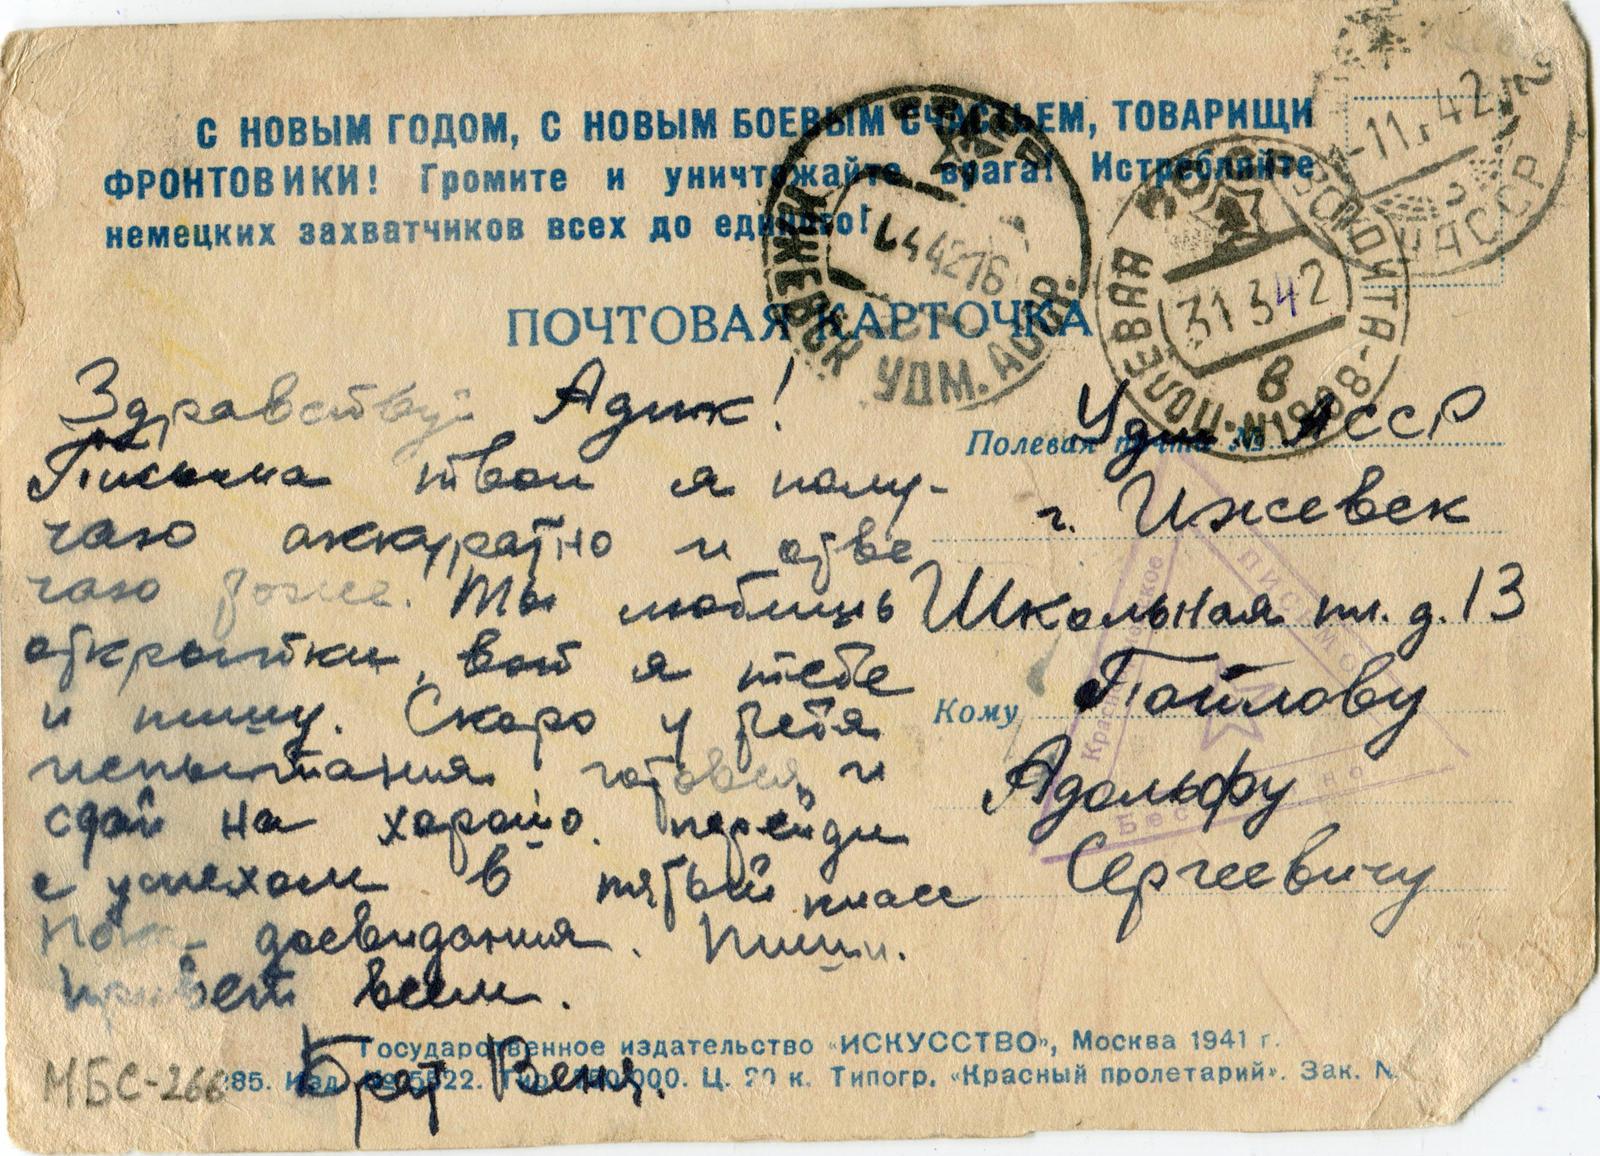 С НОВЫМ ГОДОМ, С НОВЫМ БОЕВЫМ СЧАСТЬЕМ, ТОВАРИЩИ
ФРОНТОВИКИ! Громите и уничтожайте врага! Истребляйте
немецких захватчиков всех до единого!
ПОЧТОВАЯ КАРТОЧКА
ИЖЕВСК УДМ. АССР.
4 4 42 16
СССР
ПОЛЕВАЯ
31 3 42
в
-11.42
Здравствуй Адик!
Письма твои я полу-
чаю аккуратно и отве
чаю тоже. Ты любишь
открытки, вот я тебе
и пишу. Скоро у тебя
испытания готовься и
сдай на хорошо. перейди
с успехом в пятый класс
Пока досвидания. Пиши.
Привет всем.
Брат Веня.
Полевая почта №
Удм АССР
г. Ижевск
Школьная пл. д. 13
Кому Пойлову
Адольфу
Сергеевичу
Красноармейское
ПИСЬМО
Бесплатно
Государственное издательство «ИСКУССТВО», Москва 1941 г.
85. Изд. № 5822. Ц. 20 к. Типогр. «Красный пролетарий». Зак. №
МБС-266